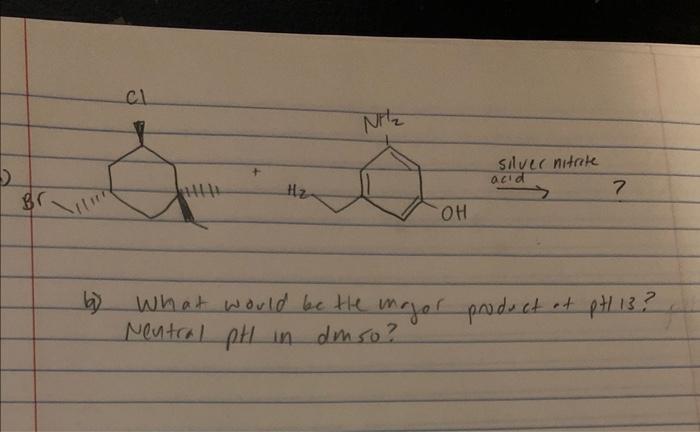 Cl
NH2
silver nitrate
acid
+
?
)
Br
H2
OH
b) What would be the major product at pH 13?
Neutral pH in dmso?